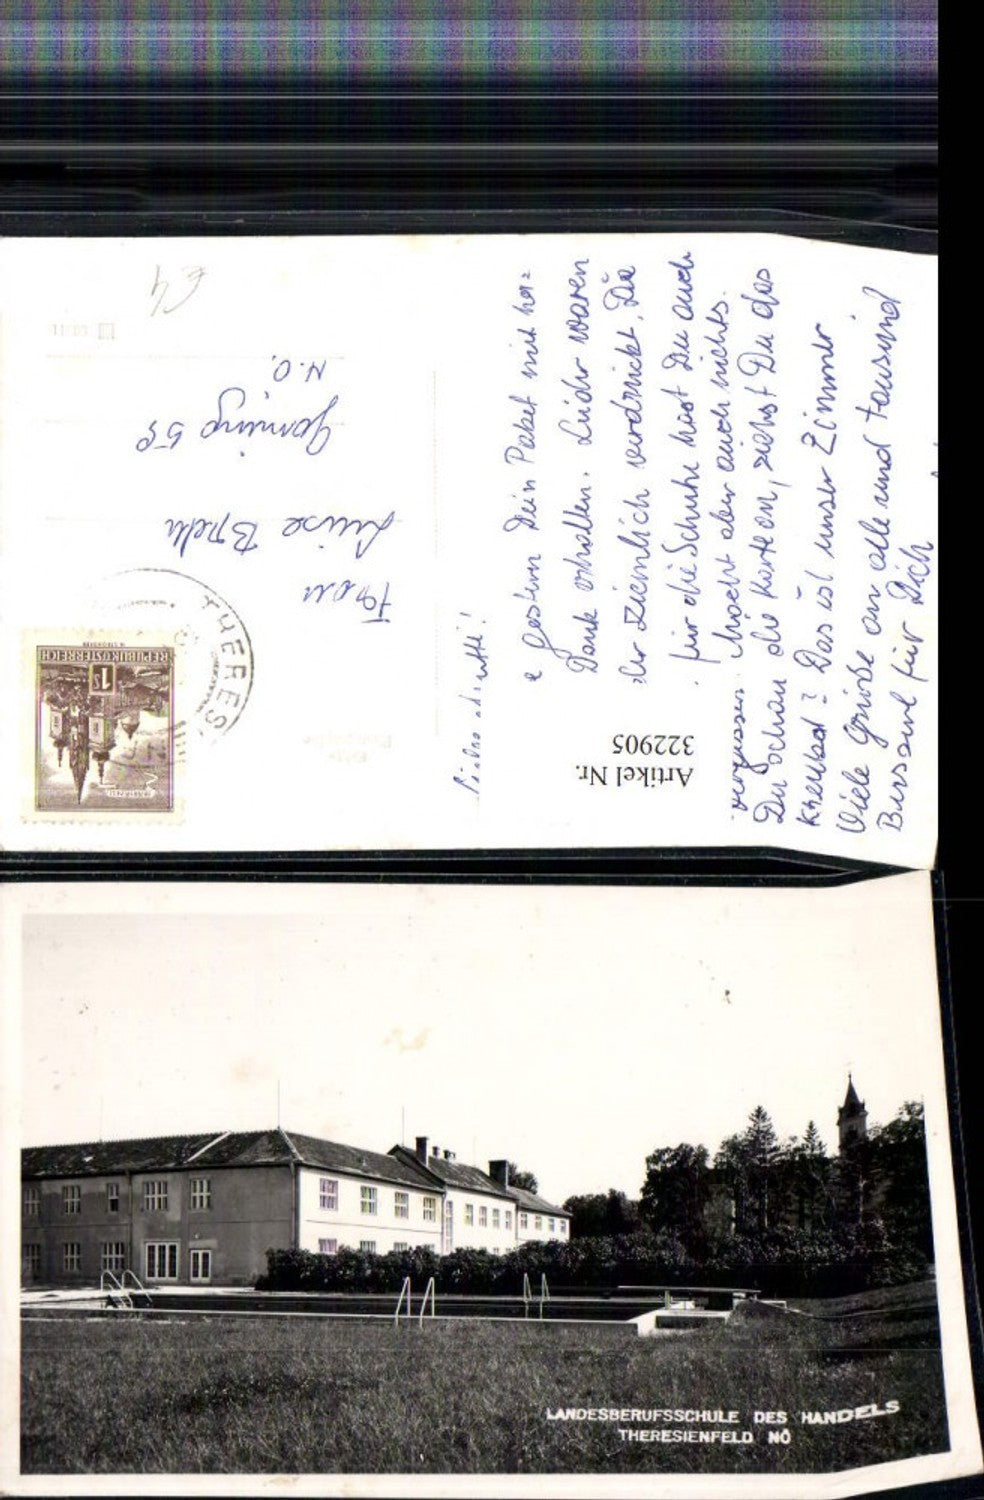 Liebe Mutti!
gestern Dein Paket mit her=
Dank erhalten. Leider waren
ziemlich verdrückt. Du
für die Schuhe hast Du auch
vergessen. Macht aber auch nichts.
Du schau die Karte an, siehst Du das
Kreuzad? Das ist unser Zimmer
Viele Grüße an alle und tausend
Busserl für Dich
Artikel Nr.
322905
Frau
Luise
Gaming 58
N.Ö.
€4
REPUBLIK ÖSTERREICH
1S
THERES
LANDESBERUFSSCHULE DES HANDELS
THERESIENFELD NÖ